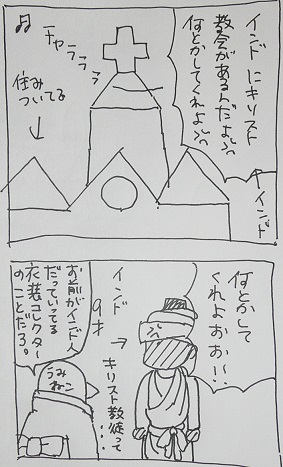 インドにキリスト
教会があるんだよぉぉ
何とかしてくれよぉぉ
インド
チャラララ
住み
ついてる
何とかして
くれよぉぉ!!
インド
9才
キリスト教徒って
・・・
お前がインド人
だっていってる
衣装コレクター
のことだろ。
うみ
ねこ